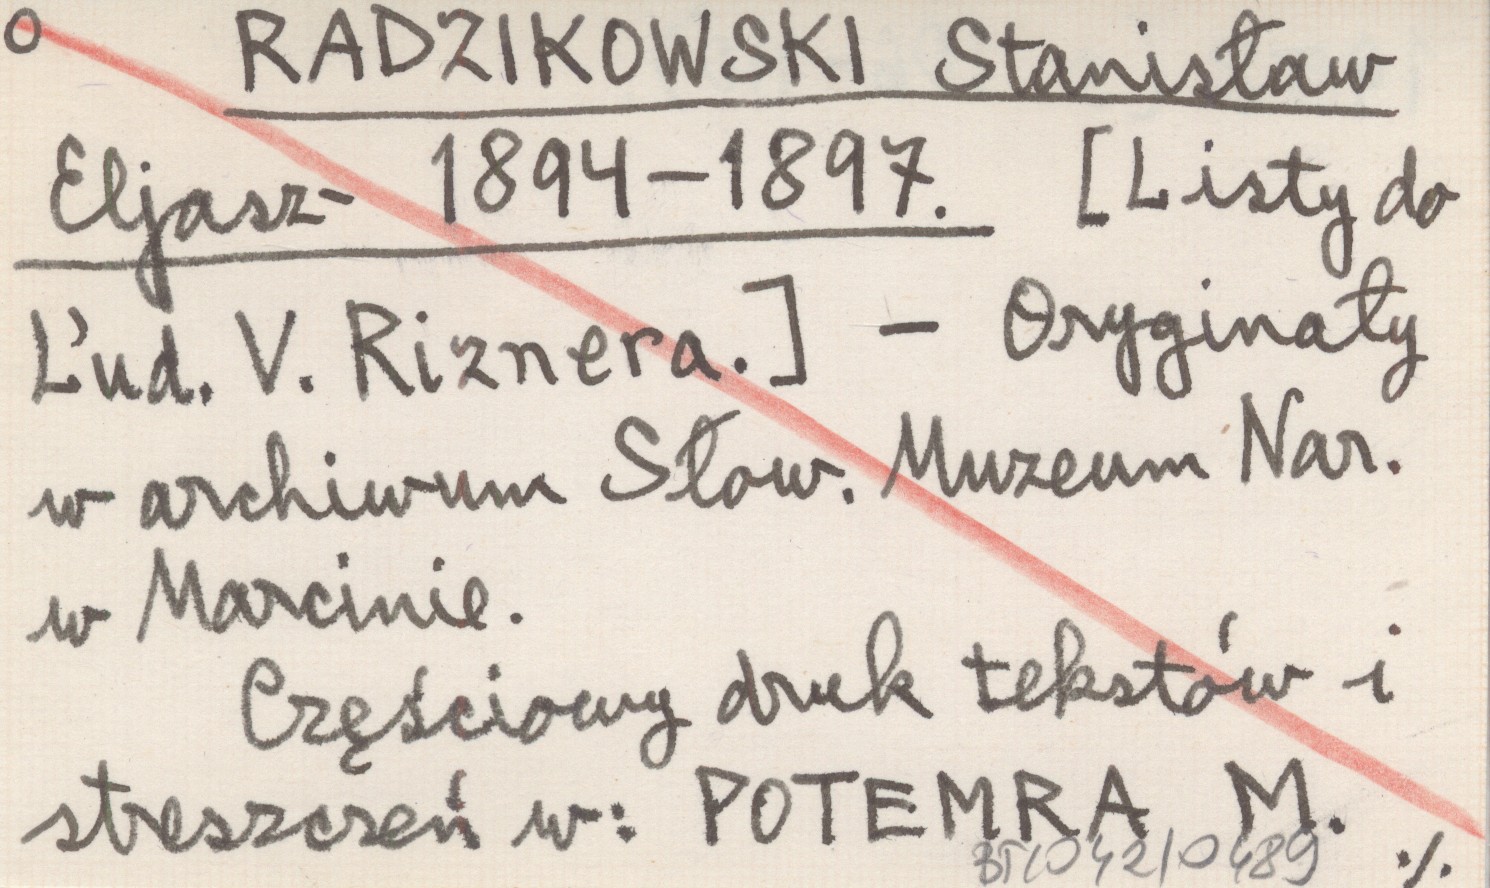 O RADZIKOWSKI Stanisław
Eljasz- 1894–1897. [Listy do
Ľud. V. Riznera.] – Oryginały
w archiwum Słow. Muzeum Nar.
w Marcinie.
Częściowy druk tekstów i
streszczeń w: POTEMRA M.
BT/042/0489 ./.